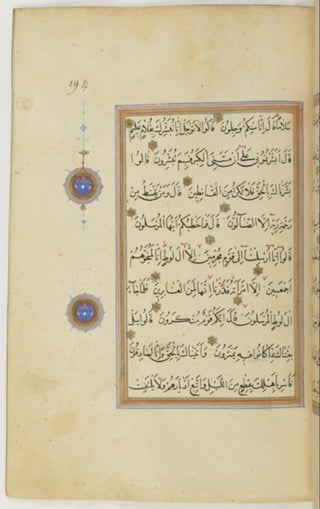 194
سَلَامًا قَالَ اِنَّا مِنْكُمْ وَجِلُونَ قَالُوا لَا تَوْجَلْ اِنَّا نُبَشِّرُكَ بِغُلَامٍ عَلِيمٍ
قَالَ اَبَشَّرْتُمُونِي عَلٰى اَنْ مَسَّنِيَ الْكِبَرُ فَبِمَ تُبَشِّرُونَ قَالُوا
بَشَّرْنَاكَ بِالْحَقِّ فَلَا تَكُنْ مِنَ الْقَانِطِينَ قَالَ وَمَنْ يَقْنَطُ مِنْ
رَحْمَةِ رَبِّهِ اِلَّا الضَّالُّونَ قَالَ فَمَا خَطْبُكُمْ اَيُّهَا الْمُرْسَلُونَ
قَالُوا اِنَّا اُرْسِلْنَا اِلٰى قَوْمٍ مُجْرِمِينَ اِلَّا اٰلَ لُوطٍ اِنَّا لَمُنَجُّوهُمْ
اَجْمَعِينَ اِلَّا امْرَاَتَهُ قَدَّرْنَا اِنَّهَا لَمِنَ الْغَابِرِينَ فَلَمَّا جَاءَ
اٰلَ لُوطٍ الْمُرْسَلُونَ قَالَ اِنَّكُمْ قَوْمٌ مُنْكَرُونَ قَالُوا بَلْ
جِئْنَاكَ بِمَا كَانُوا فِيهِ يَمْتَرُونَ وَاَتَيْنَاكَ بِالْحَقِّ وَاِنَّا لَصَادِقُونَ
فَاَسْرِ بِاَهْلِكَ بِقِطْعٍ مِنَ اللَّيْلِ وَاتَّبِعْ اَدْبَارَهُمْ وَلَا يَلْتَفِتْ